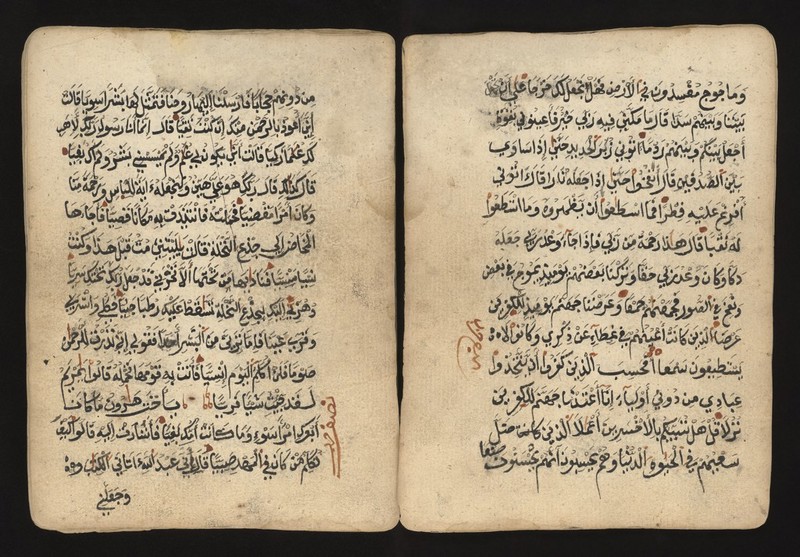 وماجوج مفسدون في الارض فهل نجعل لك خرجا على ان
بيننا وبينهم سدا قال ما مكني فيه ربي خير فاعينوني بقوة
اجعل بينكم وبينهم ردما اتوني زبر الحديد حتى اذا ساوى
بين الصدفين قال انفخوا حتى اذا جعله نارا قال اتوني
افرغ عليه قطرا فما اسطعوا ان يظهروه وما استطعوا
له نقبا قال هذا رحمة من ربي فاذا جاء وعد ربي جعله
دكا وكان وعد ربي حقا وتركنا بعضهم يوميذ يموج في بعض
ونفخ في الصور فجمعنهم جمعا وعرضنا جهنم يوميذ للكفرين
عرضا الذين كانت اعينهم في غطاء عن ذكري وكانوا لا
يستطيعون سمعا افحسب الذين كفروا ان يتخذوا
عبادي من دوني اولياء انا اعتدنا جهنم للكفرين
نزلا قل هل ننبيكم بالاخسرين اعملا الذين ضل
سعيهم في الحيوة الدنيا وهم يحسبون انهم يحسنون صنعا
من دونهم حجابا فارسلنا اليها روحنا فتمثل لها بشرا سويا قالت
اني اعوذ بالرحمن منك ان كنت تقيا قال انما انا رسول ربك لاهب
لك غلما زكيا قالت انى يكون لي غلم ولم يمسسني بشر ولم اك بغيا
قال كذلك قال ربك هو علي هين ولنجعله ءاية للناس ورحمة منا
وكان امرا مقضيا فحملته فانتبذت به مكانا قصيا فاجاءها
المخاض الى جذع النخلة قالت يليتني مت قبل هذا وكنت
نسيا منسيا فناداها من تحتها الا تحزني قد جعل ربك تحتك سريا
وهزي اليك بجذع النخلة تسقط عليك رطبا جنيا فكلي واشربي
وقري عينا فاما ترين من البشر احدا فقولي اني نذرت للرحمن
صوما فلن اكلم اليوم انسيا فاتت به قومها تحمله قالوا يمريم
لقد جيت شيا فريا ياخت هرون ما كان
ابوك امرا سوء وما كانت امك بغيا فاشارت اليه قالوا كيف
نكلم من كان في المهد صبيا قال اني عبد الله ءاتاني الكتب
وجعلني
نصف حزب